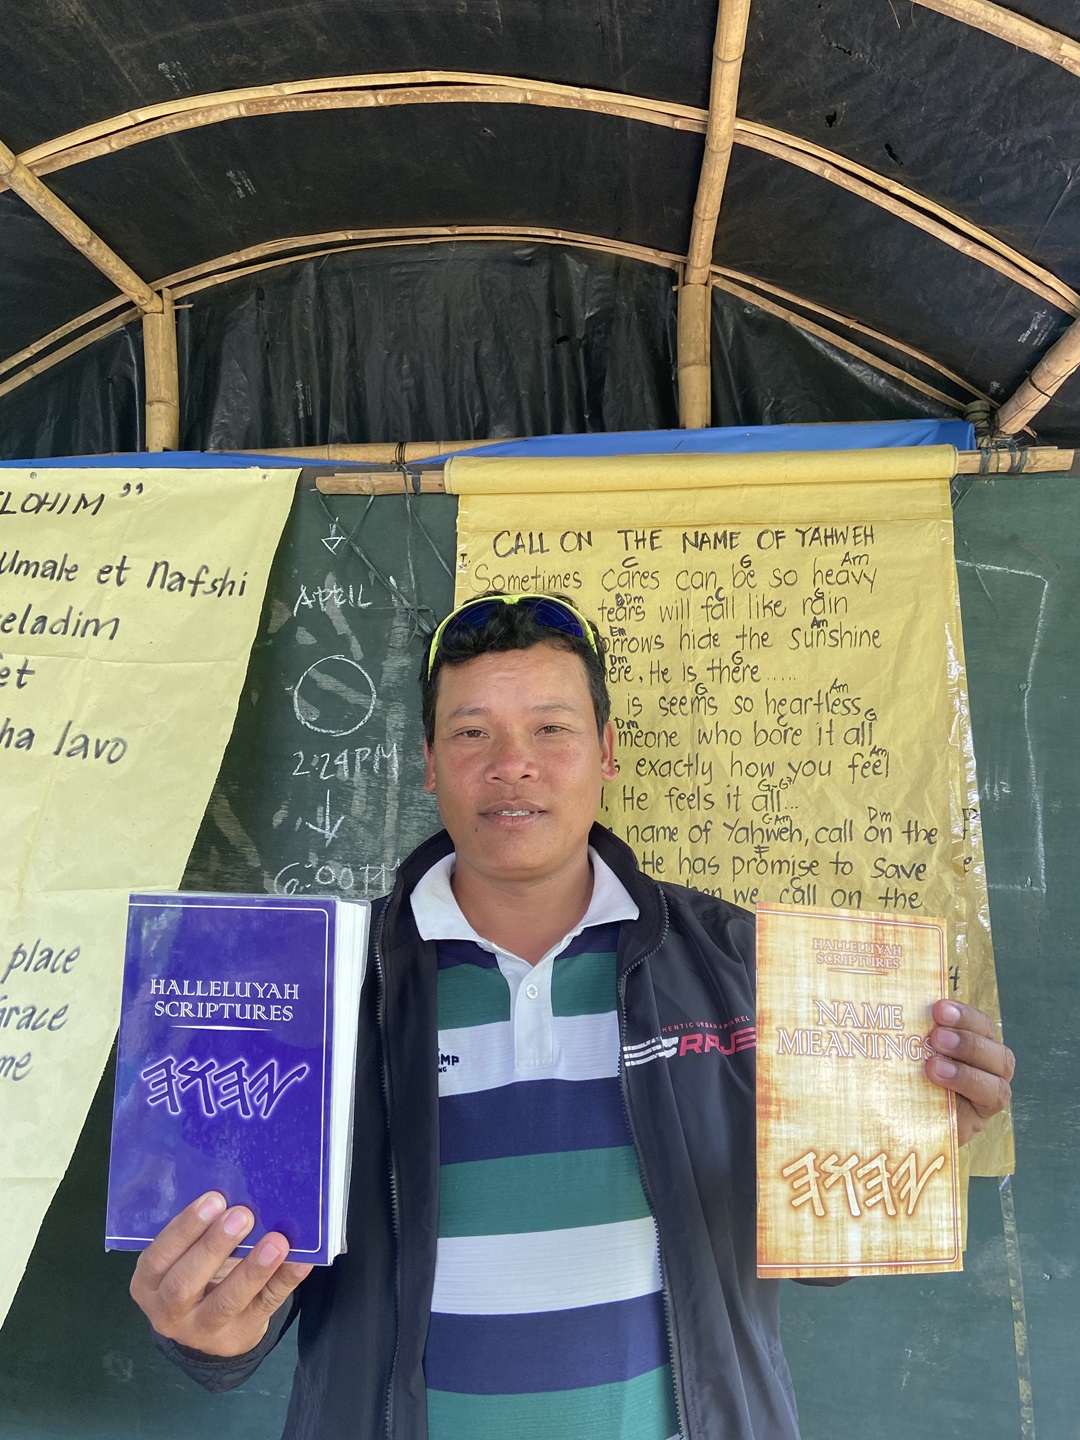 ELOHIM "
umale et Nafshi
eladim
et
ha lavo
place
Grace
me
APRIL
2:24PM
6:00PM
CALL ON THE NAME OF YAHWEH
C G Am
Sometimes cares can be so heavy
Dm C G
tears will fall like rain
Em Am
orrows hide the sunshine
Dm G
ere, He is there.....
G Am
is seems so heartless
Dm G
meone who bore it all
Am
exactly how you feel
G-G7
He feels it all...
G Am Dm
name of Yahweh, call on the
F
He has promise to save
G
when we call on the
HALLELUYAH
SCRIPTURES
𐤉𐤄𐤅𐤄
HENTIC URBAN APPAREL
MP
NG
HALLELUYAH
SCRIPTURES
NAME
MEANINGS
𐤉𐤄𐤅𐤄